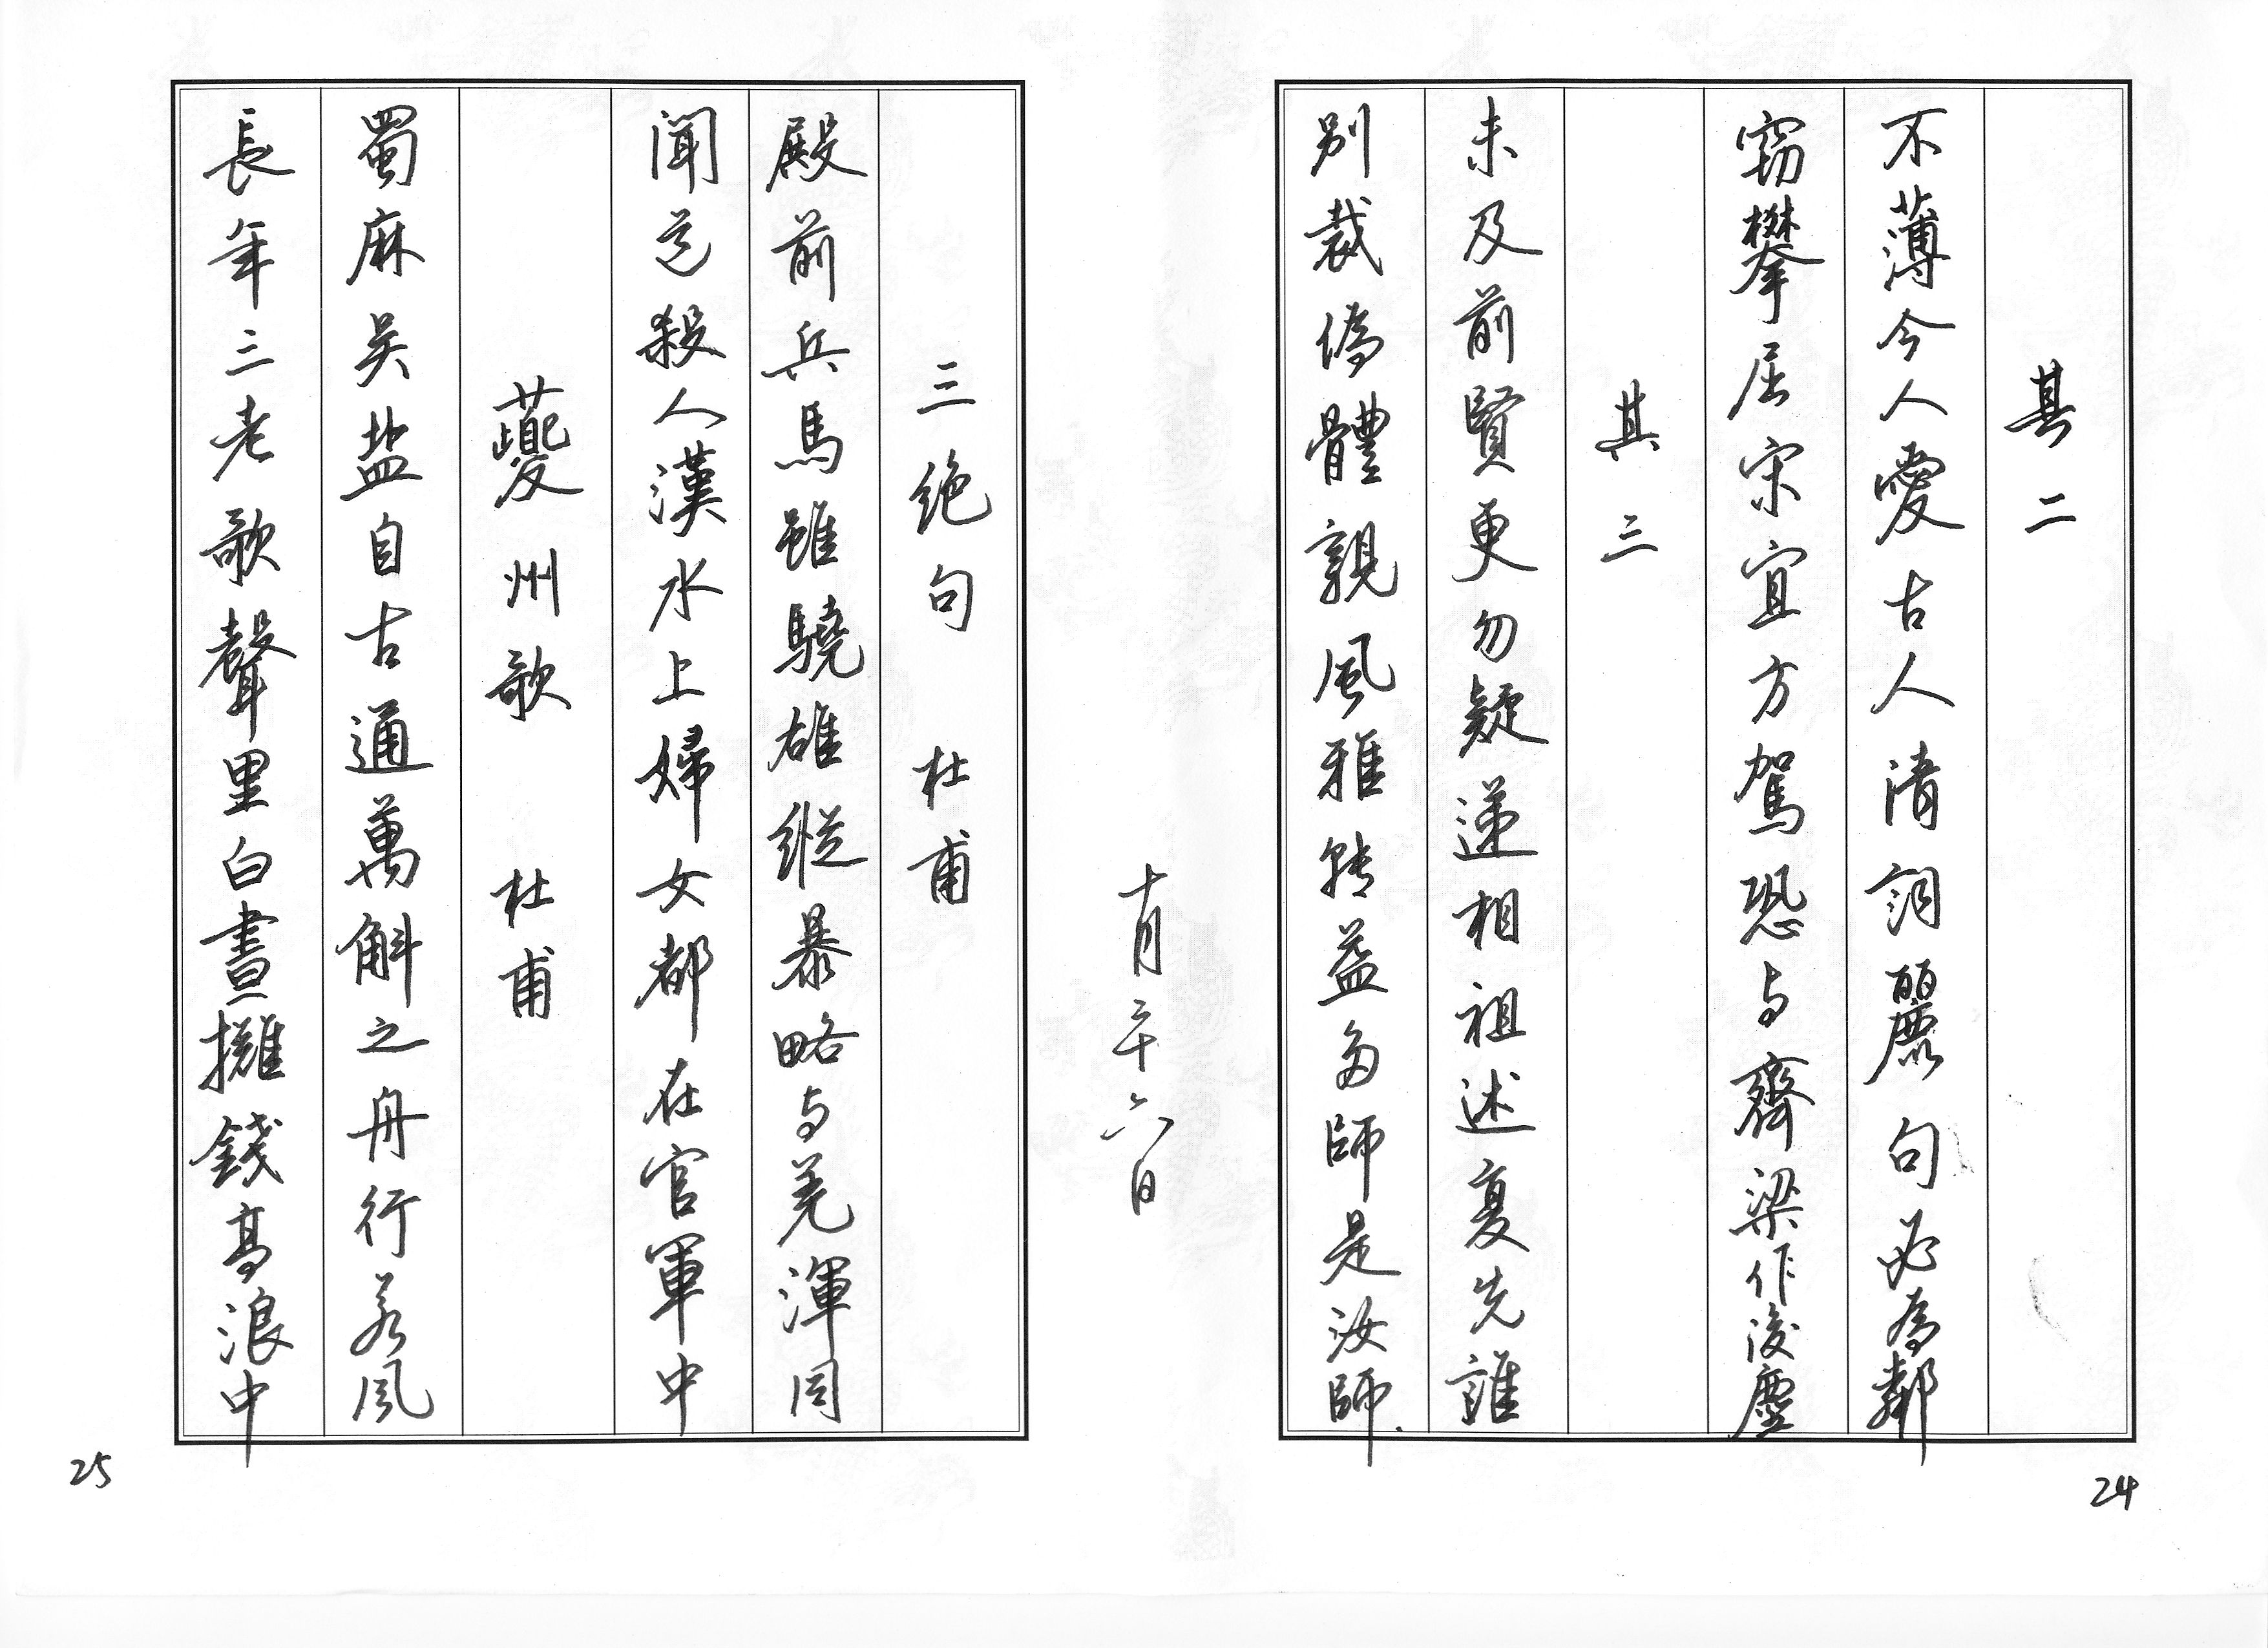 其二
不薄今人愛古人清詞麗句必為鄰
竊攀屈宋宜方駕恐与齊梁作後塵
其三
未及前賢更勿疑遞相祖述夏先誰
別裁偽體親風雅轉益多師是汝師
24
十月二十六日
三绝句 杜甫
殿前兵馬雖驍雄縱暴略与羌渾同
聞道殺人漢水上婦女都在官軍中
夔州歌 杜甫
蜀麻吴盐自古通萬斛之舟行若風
長年三老歌聲里白晝攤錢高浪中
25